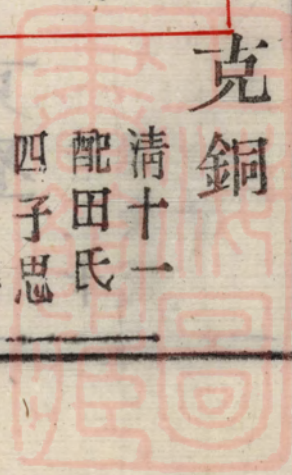 克銅
清十一
配田氏
四子思